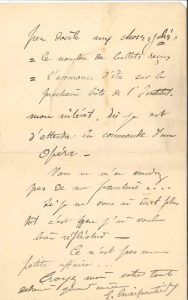 peu docile aux choses
= le nombre de bulletins reçus
= l'assurance d'être sur la
prochaine liste de l'Institut.
mon intérêt, dis-je est
d'attendre la commande d'un
Opéra –
Vous ne m'en voudrez
pas de ma franchise....
Si je ne vous ai écrit plus
tôt c'est que j'ai voulu
bien réfléchir –
Ce n'est pas une
petite affaire.
Croyez moi votre tout
quand même.
G. Charpentier